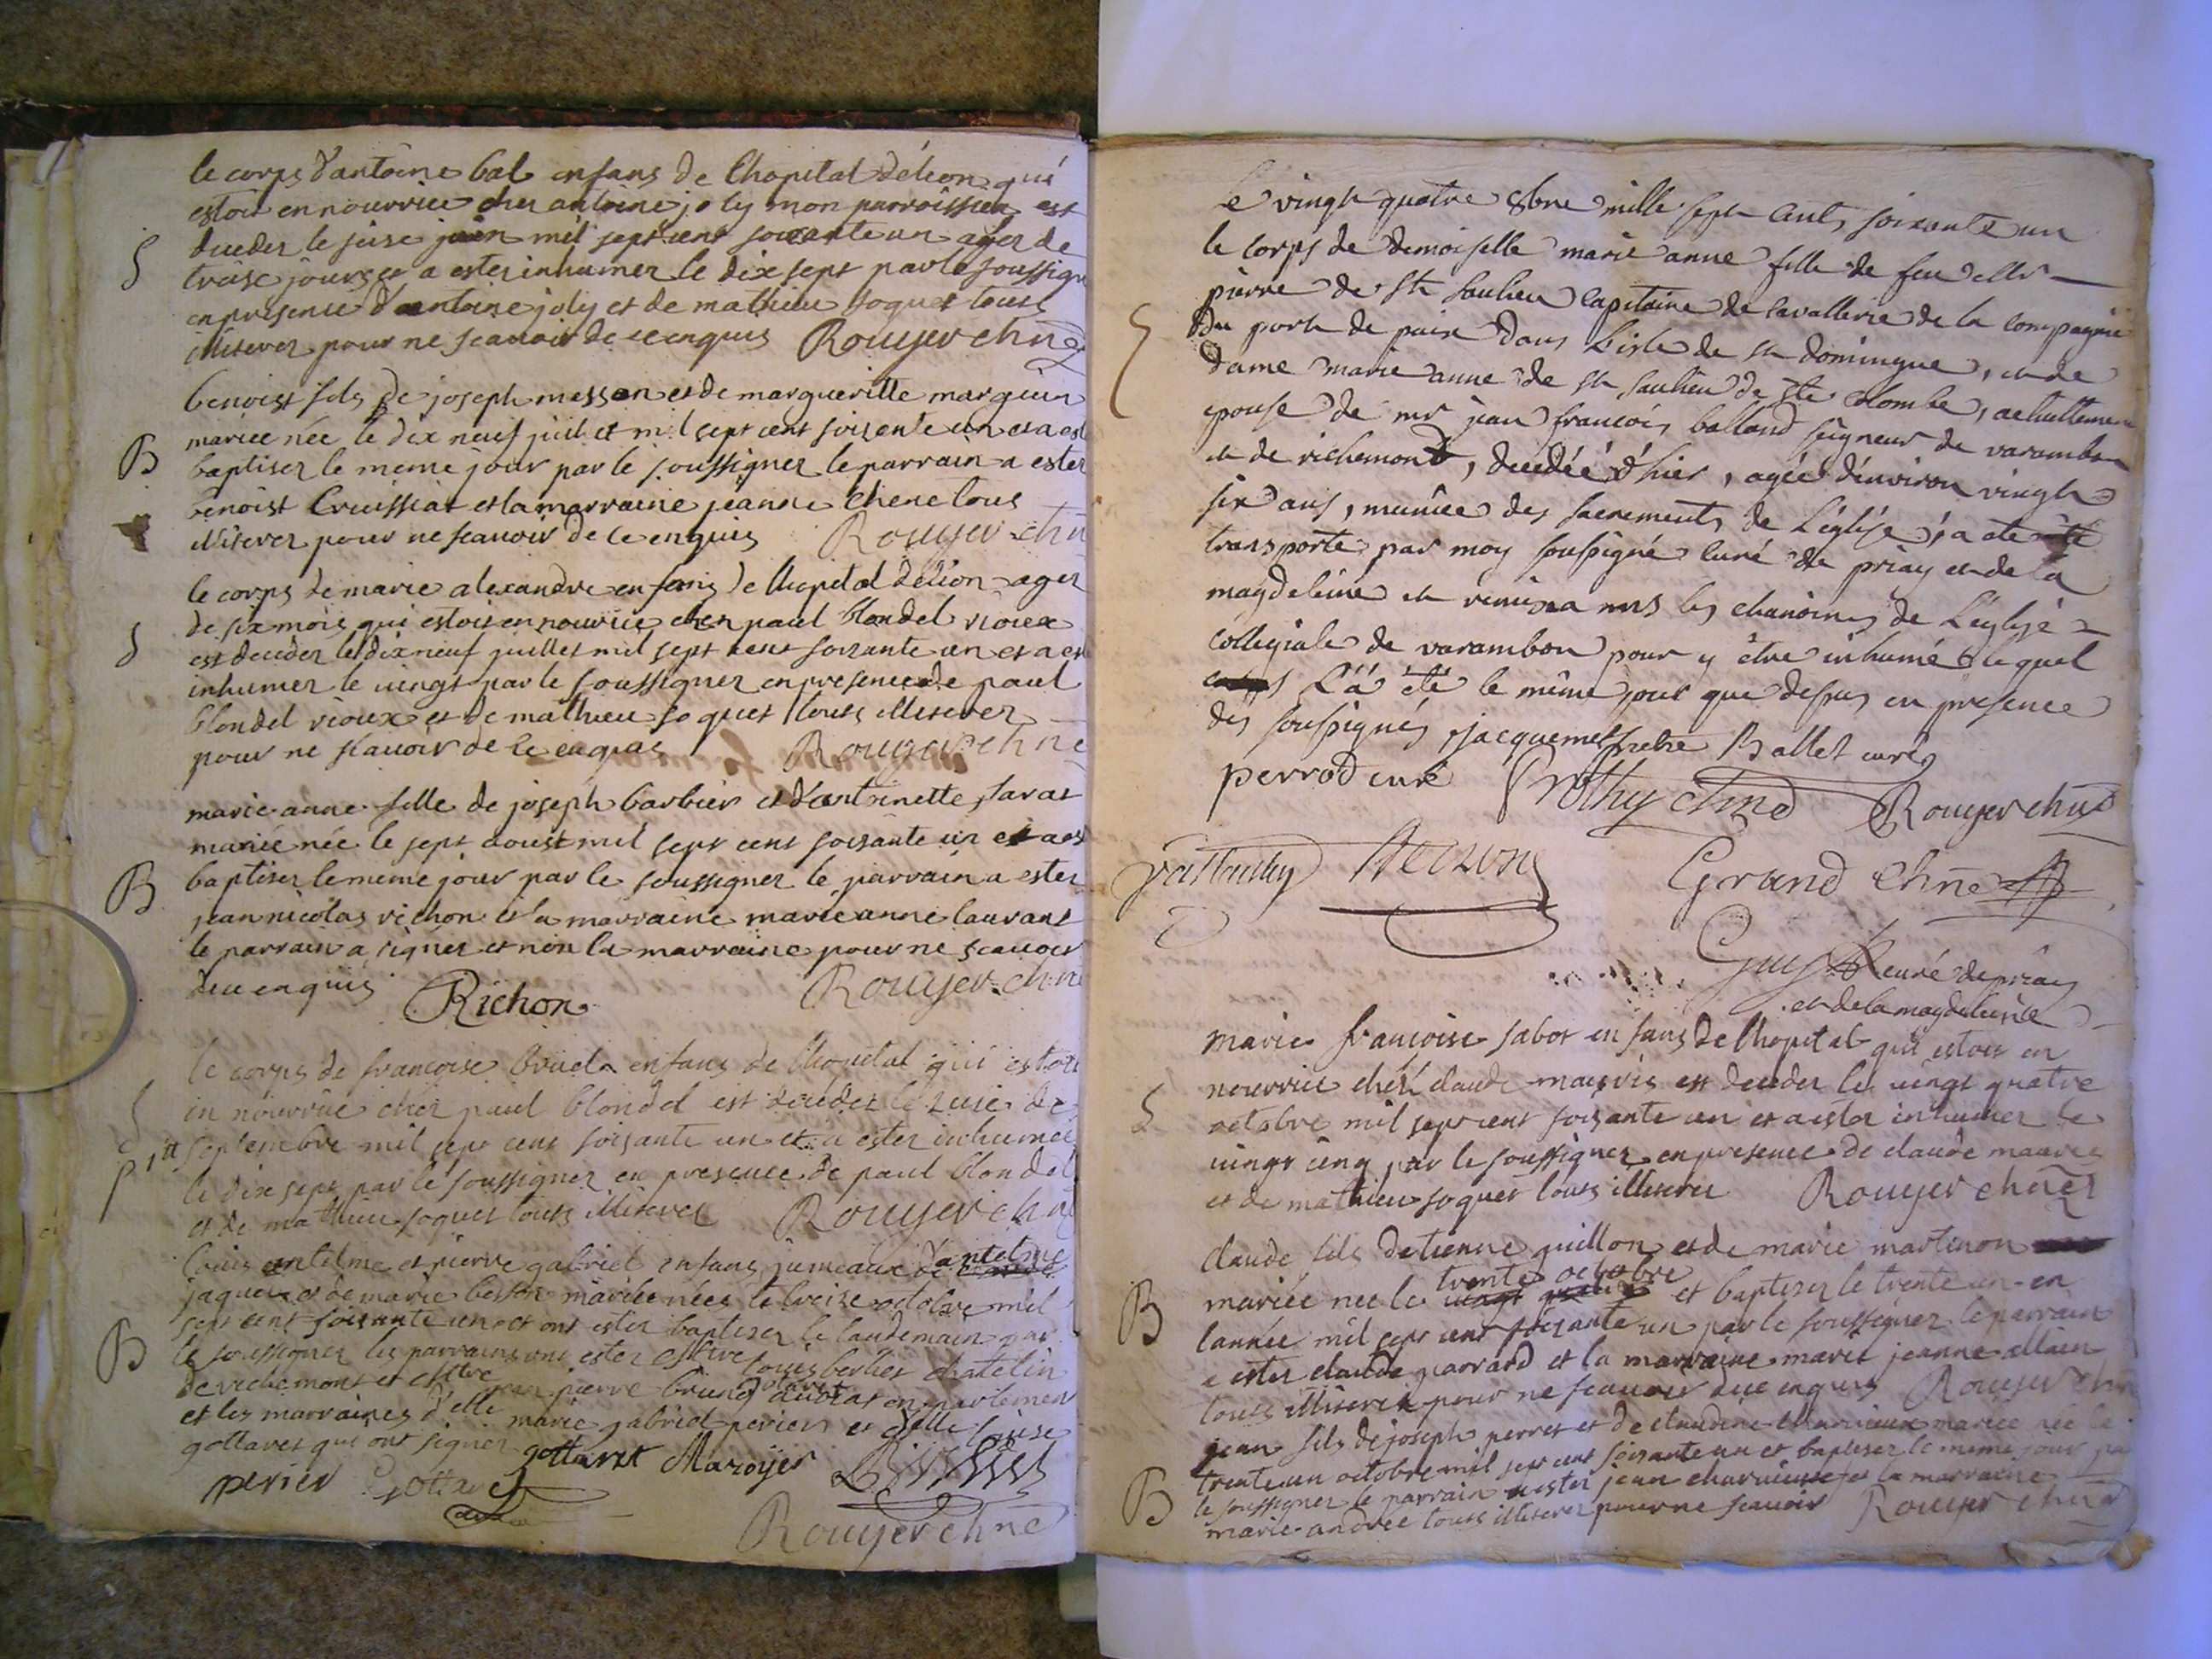 le corps d'antoine bal enfans de l'hopital délion qui
estoit en nourrice cher antoine joly mon parroissien est
S
deceder le seise juin mil sept cent soixante un ager de
treise jours et a ester inhumer le dix sept par le soussigne
en presence d'antoine joly et de mathieu soquet touts
illiterer pour ne scauoir de ce enquis Rouyer chne
benoist fils de joseph messon et de margueritte marguin
mariee née le dix neuf juillet mil sept cent soisente un et a est
B
baptiser le meme jour par le soussigner le parrain a ester
benoist Cruissiat et la marraine jeanne chene tous
illiterer pour ne scauoir de ce enquis Rouyer chn
le corps de marie alexandre enfans de lhopital délion ager
de six mois qui estoit en nourrice cher paul blondel vioux
S
est deceder le dix neuf juillet mil sept cent soisante un et a est
inhumer le uingt par le soussigner en presence de paul
blondel vioux et de mathieu soquet touts illiterer
pour ne scauoir de ce enquis Rouyer chne
marie anne fille de joseph barbier et d'antoinette
mariée née le sept aoust mil sept cent soisante un et a est
B
baptiser le meme jour par le soussigner le parrain a ester
jean nicolas richon et la marraine marie anne laurant
le parrain a signer et non la marraine pour ne scauoir
de ce enquis Richon Rouyer chne
le corps de francoise enfans de lhopital qui estoit
S
en nourrice cher paul blondel est deceder le seise de
septembre mil sept cent soisante un et a ester inhumer
le dix sept par le soussigner en presence de paul blondel
et de mathieu soquet touts illiterer Rouyer chne
louis antelme et pierre gabriel enfans jumeaux d'antelme
jaquier et de marie besson mariée nées le treise octobre mil
sept cent soisante un et ont ester baptiser le landemain par
B
le soussigner les parrains ont ester louis berlier chatelin
de richemont et pierre brun en parlement
et les marraines d'elle marie gabriel perier et d'elle louise
gottaret qui ont signer gottaret Maroyer
perier Gottaret
Rouyer chne
Le vingt quatre 8bre mille sept cents soixante un
le corps de demoiselle marie anne fille de feu
pierre de st saulieu capitaine de cavallerie de la compagnie
S
du port de paix dans l'isle de st domingue, et de
dame marie anne de st saulieu de ste colombe, actuellement
epouse de mr jean françois balland seigneur de varambon
et de richemont, decedée d'hier, agée d'environ vingt
six ans, munie des sacrements de l'église, a ete
transporté par moy soussigné curé de priay et de la
magdeleine et remis a mrs les chanoines de l'église
collegiale de varambon pour y être inhumé lequel
l'a été le même jour que dessus en presence
des soussignés, jacquemet pretre Ballet curé
perrod curé chne Rouyer chne
Grand chne
Guy curé de priay
et de la magdeleine
marie françoise sabot enfans de lhopital qui estoit en
nourrice chér claude est deceder le uingt quatre
S
octobre mil sept cent soisante un et a ester inhumer le
uingt cinq par le soussigner en presence de claude
et de mathieu soquet touts illiterer Rouyer chne
claude fils detienne guillon et de marie martinon
mariée nee le trente octobre et baptiser le trente un en
B
lannée mil sept cent soisante un par le soussigner le parrain
a ester claude parrard et la marraine marie jeanne allain
touts illiterer pour ne scauoir de ce enquis Rouyer chne
jean fils de joseph perret et de claudine charvieux mariée née le
trente un octobre mil sept cent soisante un et baptiser le meme jour par
B
le soussigner le parrain a ester jean charvieux et la marraine
marie andrée touts illiterer pour ne scauoir Rouyer chne